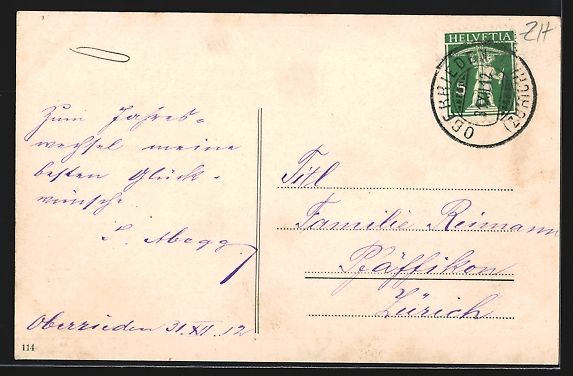 ZH
HELVETIA
OBERRIEDEN (ZÜRICH)
Zum Jahres-
wechsel meine
besten Glück-
wünsche
S. Abegg.
Oberrieden 31. XII. 12
Titl
Familie Reimann
Pfäffikon
Zürich
114